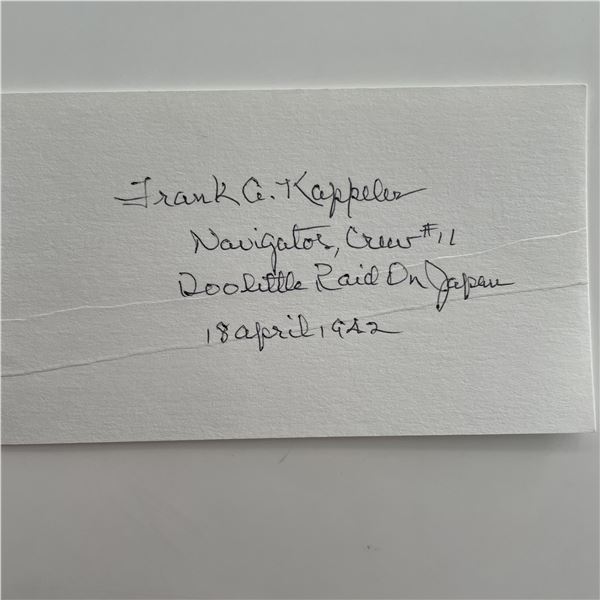 Frank A. Kappeler
Navigator, Crew #11
Doolittle Raid On Japan
18 april 1942